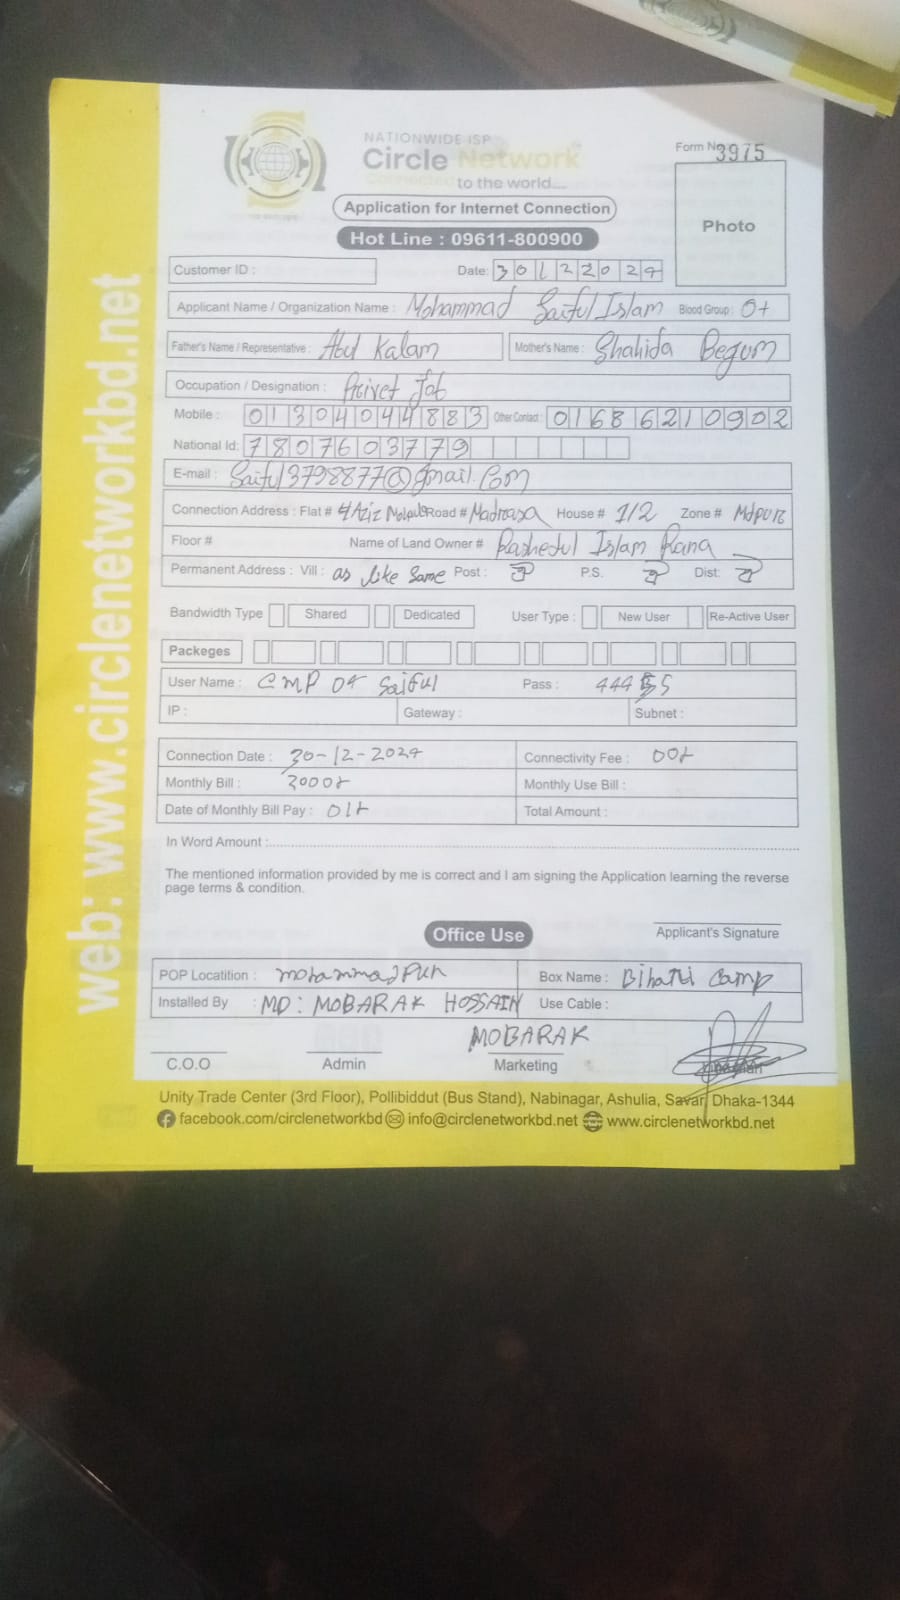 NATIONWIDE ISP
Circle Network
Connected to the world....
Form No. 3975
Photo
Application for Internet Connection
Hot Line : 09611-800900
Customer ID :
Date: 30122024
Applicant Name / Organization Name : Mohammad Saiful Islam Blood Group : O+
Father's Name / Representative : Abul Kalam Mother's Name : Shahida Begum
Occupation / Designation : Privet Job
Mobile : 01304044883 Other Contact : 01686210902
National Id: 7807603779
E-mail : Saiful3798877@gmail.com
Connection Address : Flat # 4 Aziz Road # Madrasa House # 1/2 Zone # Mdpur
Floor # Name of Land Owner # Rashedul Islam Rana
Permanent Address : Vill : as like Same Post : P.S. Dist:
Bandwidth Type Shared Dedicated User Type : New User Re-Active User
Packeges
User Name : CMP 04 Saiful Pass :
IP : Gateway : Subnet :
Connection Date : 30-12-2024 Connectivity Fee :
Monthly Bill : Monthly Use Bill :
Date of Monthly Bill Pay : Total Amount :
In Word Amount :
The mentioned information provided by me is correct and I am signing the Application learning the reverse
page terms & condition.
Applicant's Signature
Office Use
POP Locatition : mohammadpur Box Name : Bihari Camp
Installed By : MD: MOBARAK HOSSAIN Use Cable :
MOBARAK
C.O.O Admin Marketing
Unity Trade Center (3rd Floor), Pollibiddut (Bus Stand), Nabinagar, Ashulia, Savar, Dhaka-1344
facebook.com/circlenetworkbd info@circlenetworkbd.net www.circlenetworkbd.net
web: www.circlenetworkbd.net